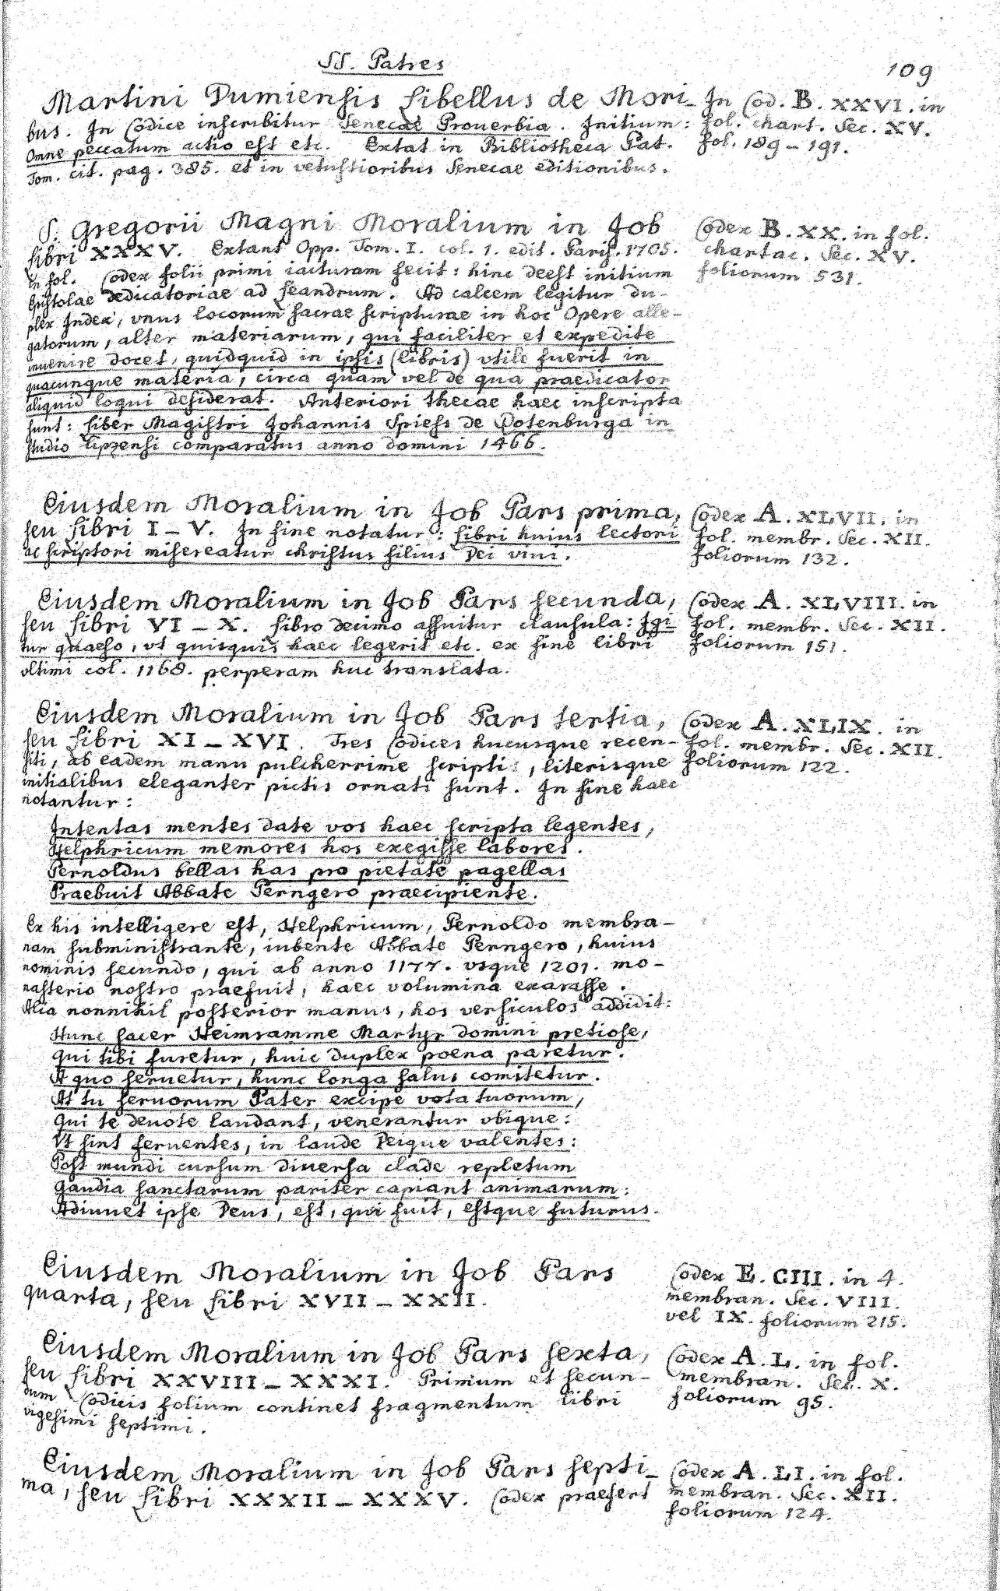 SS. Patres
109
Martini Dumiensis Libellus de Mori-
bus. In Codice inscribitur Senecae Prouerbia. Initium:
Omne peccatum actio est etc. Extat in Bibliotheca Pat.
Tom. cit. pag. 385. et in vetustioribus Senecae editionibus.
In Cod. B. XXVI. in
fol. chart. Sec. XV.
fol. 189 – 191.
S. Gregorii Magni Moralium in Job
Libri XXXV. Extant Opp. Tom. I. col. 1. edit. Paris. 1705.
in fol. Codex folii primi iacturam fecit: hinc deest initium
Epistolae dedicatoriae ad Leandrum. Ad calcem legitur du-
plex Index, vnus locorum sacrae scripturae in hoc Opere alle-
gatorum, alter materiarum, qui faciliter et expedite
inuenire docet, quidquid in ipsis (libris) vtile fuerit in
quacunque materia, circa quam vel de qua praedicator
aliquid loqui desiderat. Anteriori thecae haec inscripta
sunt: Liber Magistri Johannis Spiess de Rotenburga in
studio Lipzensi comparatus anno domini 1466.
Codex B. XX. in fol.
chartac. Sec. XV.
foliorum 531.
Eiusdem Moralium in Job Pars prima,
seu Libri I – V. In fine notatur: Libri huius lectori
ac scriptori misereatur christus filius Dei viui.
Codex A. XLVII. in
fol. membr. Sec. XII.
foliorum 132.
Eiusdem Moralium in Job Pars secunda,
seu Libri VI – X. Libro decimo assuitur clausula: Igi
tur quaeso, vt quisquis haec legerit etc. ex fine libri
vltimi col. 1168. perperam huc translata.
Codex A. XLVIII. in
fol. membr. Sec. XII.
foliorum 151.
Eiusdem Moralium in Job Pars tertia,
seu Libri XI – XVI. Tres Codices hucusque recen-
siti, ab eadem manu pulcherrime scripti, literisque
initialibus eleganter pictis ornati sunt. In fine haec
notantur:
Codex A. XLIX. in
fol. membr. Sec. XII.
foliorum 122.
Intentas mentes date vos haec scripta legentes,
Helphricum memores hos exegisse labores.
Pernoldus bellas has pro pietate pagellas
Praebuit Abbate Perngero praecipiente.
Ex his intelligere est, Helphricum, Pernoldo membra-
nam subministrante, iubente Abbate Perngero, huius
nominis secundo, qui ab anno 1177. vsque 1201. mo-
nasterio nostro praefuit, haec volumina exarasse.
Alia nonnihil posterior manus, hos versiculos addidit:
Hunc sacer Heimramme Martyr domini pretiose,
Qui tibi furetur, huic duplex poena paretur.
A quo seruetur, hunc longa salus comitetur.
At tu seruorum Pater excipe vota tuorum,
Qui te deuote laudant, venerantur vbique:
Vt sint feruentes, in laude Deique valentes:
Post mundi cursum diuersa clade repletum
Gaudia sanctarum pariter capiant animarum:
Adiuuet ipse Deus, est, qui fuit, estque futurus.
Eiusdem Moralium in Job Pars
quarta, seu Libri XVII – XXII.
Codex E. CIII. in 4.
membran. Sec. VIII.
vel IX. foliorum 215.
Eiusdem Moralium in Job Pars sexta,
seu Libri XXVIII – XXXI. Primum et secun-
dum Codicis folium continet fragmentum libri
vigesimi septimi.
Codex A. L. in fol.
membran. Sec. X.
foliorum 95.
Eiusdem Moralium in Job Pars septi-
ma, seu Libri XXXII – XXXV. Codex praesert
Codex A. LI. in fol.
membran. Sec. XII.
foliorum 124.